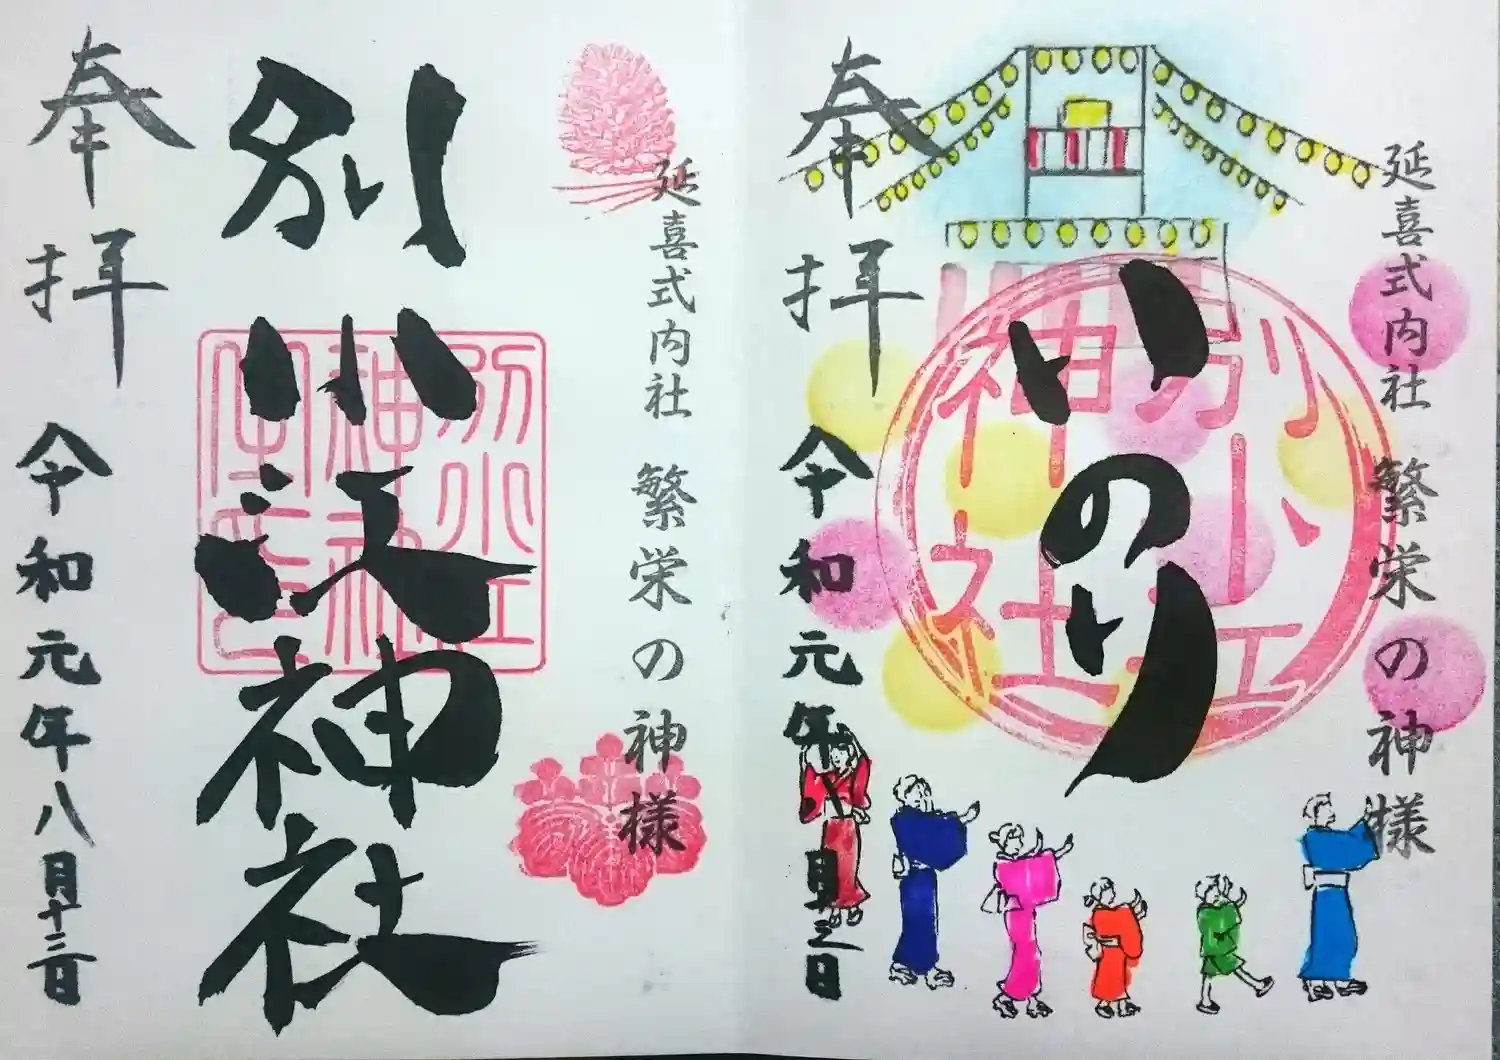 延喜式内社 繁栄の神様
いのり
別小江神社
奉拝
令和元年八月十三日
延喜式内社 繁栄の神様
別小江神社
別小江神社
奉拝
令和元年八月十三日